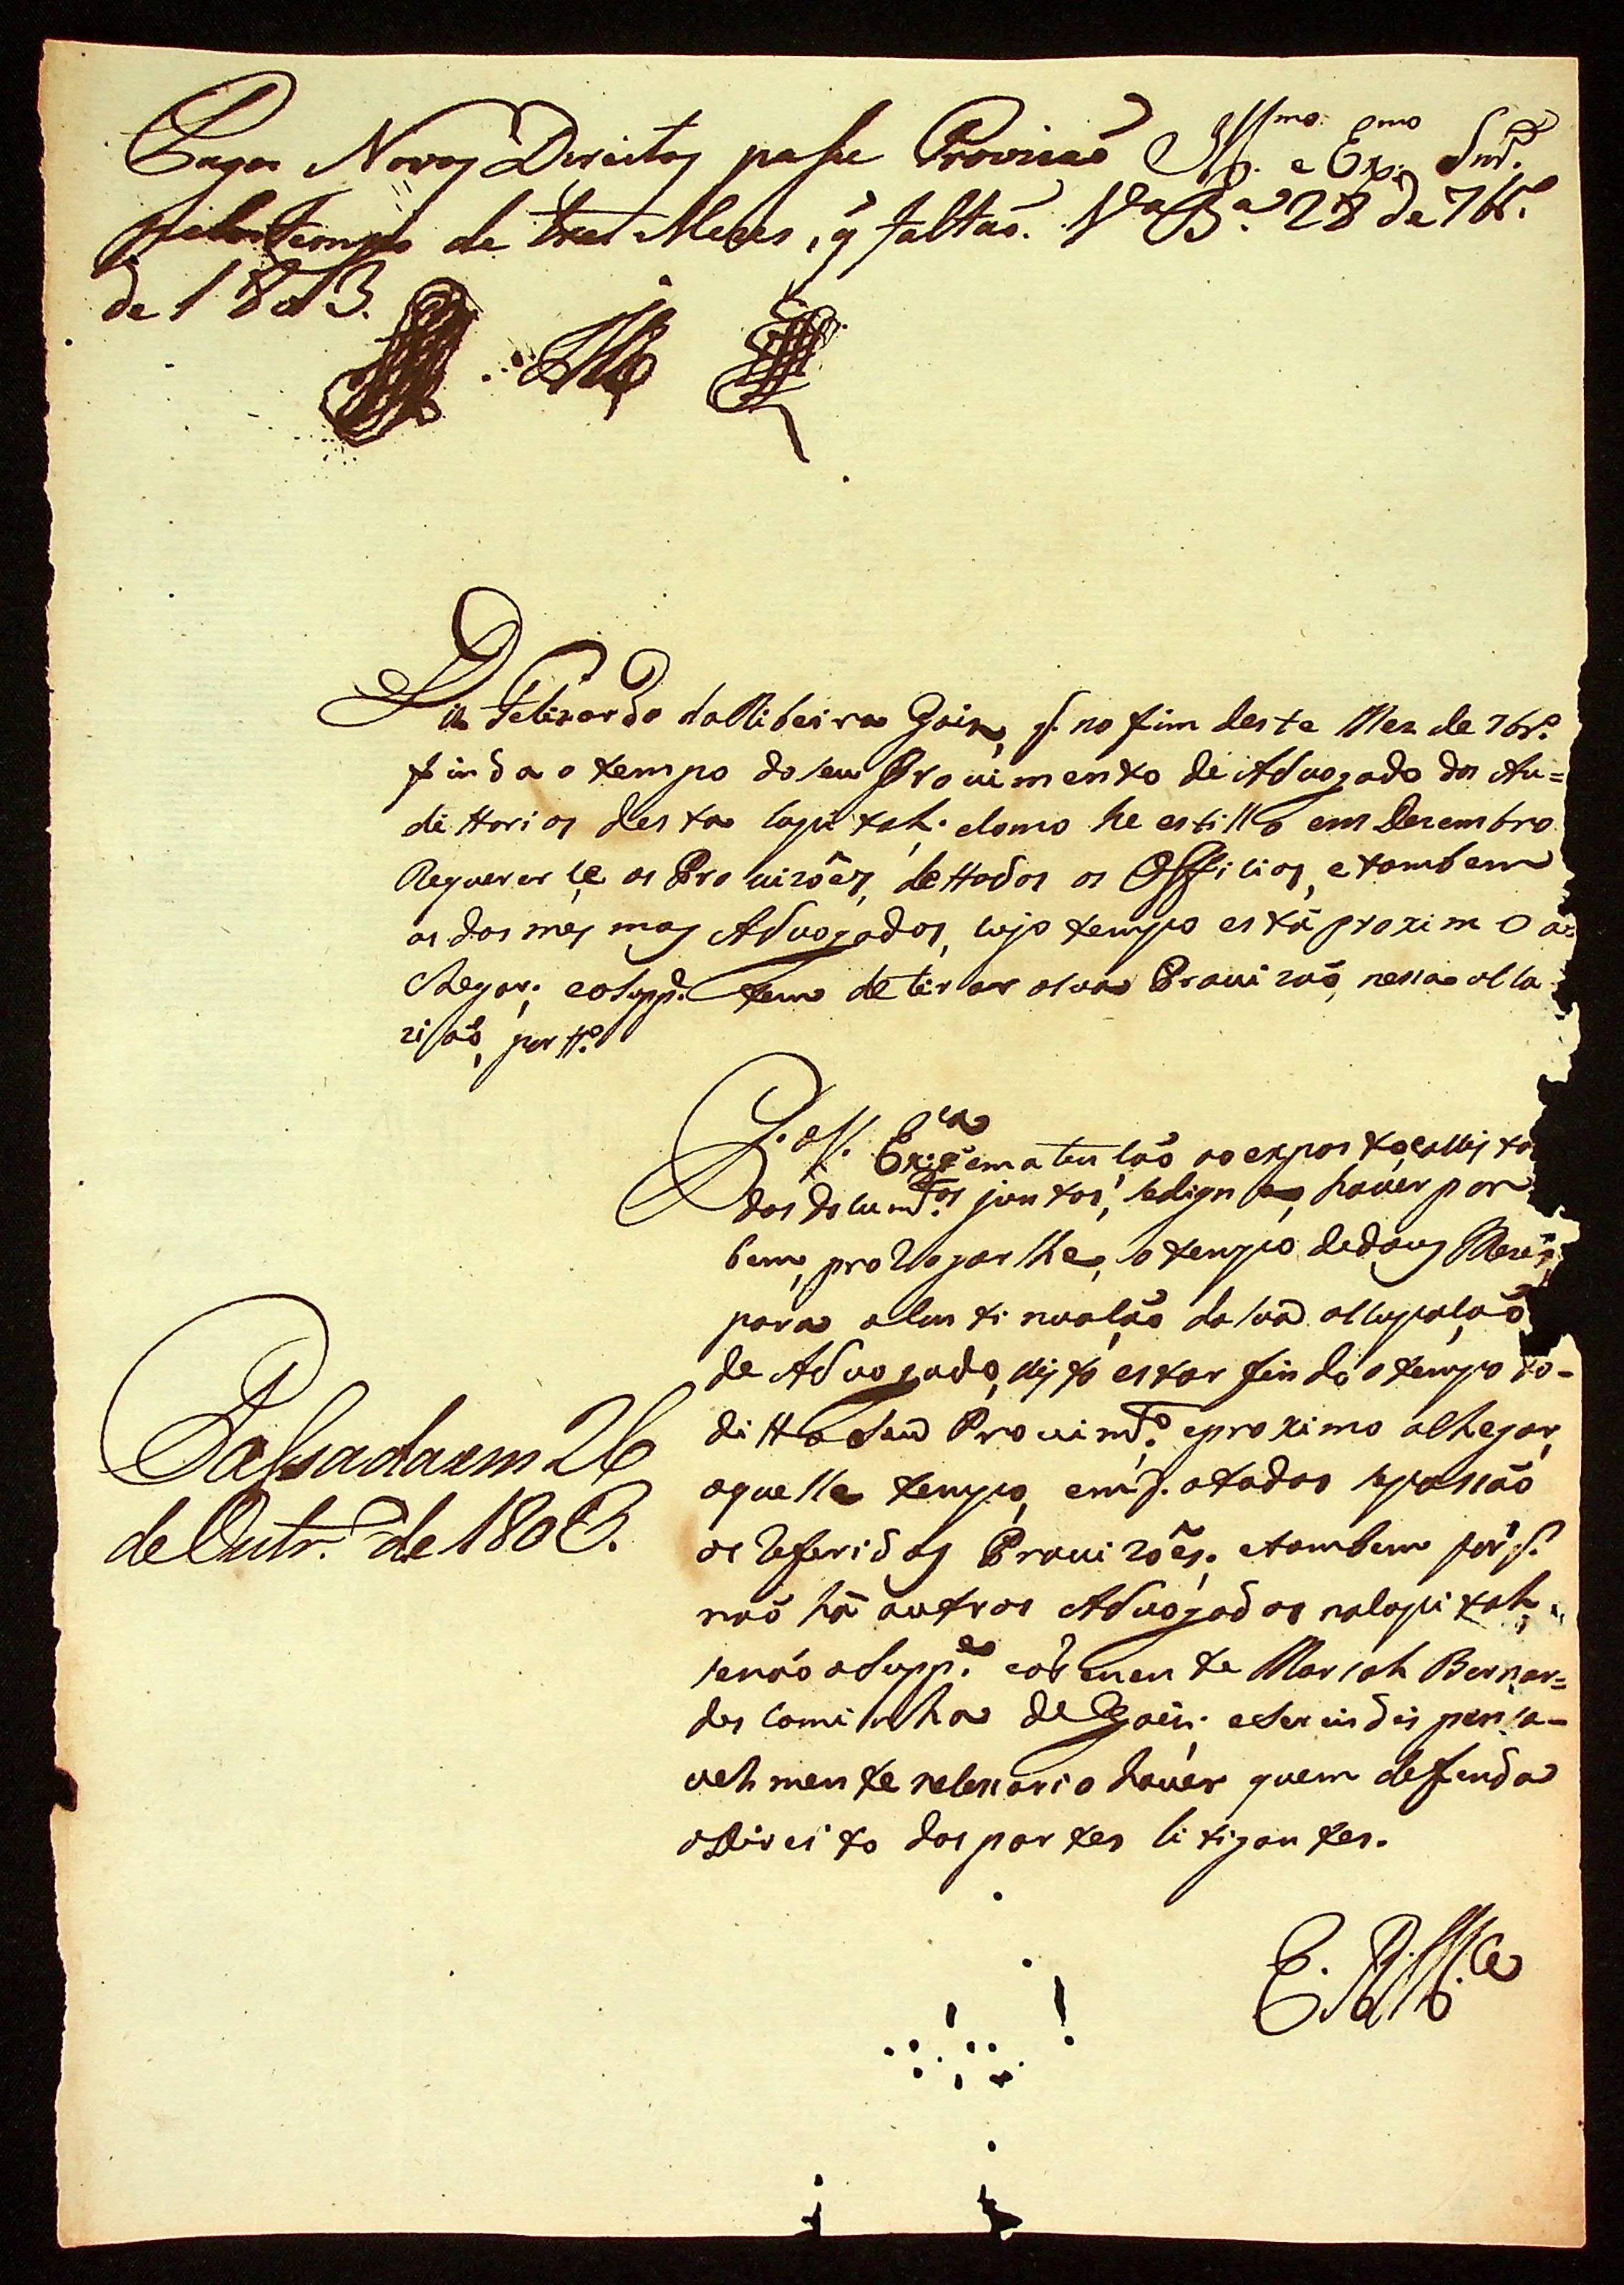 Pagos Novos Direitos passe Provizaõ
pelo tempo de tres Mezes, q̃ faltaõ. V.ª B.ª 28 de 7br.º
de 1803.
Ill.mo e Ex.mo Snr.
Diz Felizardo da Ribeira Gois, q. no fim deste Mez de 7br.º
finda o tempo do seu Provimento de Advogado dos Au=
dittorios desta Capitah: e como he estillo em Dezembro
Requerer se as Provizões, de ttodos os Officios, e tambem
as dos mesmos Advogados, cujo tempo está proximo a=
chegar; e o Supp.e tem de tirar a sua Provizaõ, nessa occa
ziaõ, por tt.º
P. a V. Ex.ca q em atençaõ ao exposto, e a vista
dos docum.tos juntos, se digne, haver por
bem, prorogar lhe, o tempo de dous Mezes,
para a continuaçaõ da sua occupaçaõ
de Advogado, visto estar findo o tempo do-
ditto seu Provim.to e proximo a chegar,
aquelle tempo, em q. a todos se passaõ
as Referidas Provizões, e tambem por q.
naõ há outros Advogados na Capitah,
senaõ o Supp.e e somente Marsah Bernar=
des Caminha de Gois; e ser indispensa-
vehmente necessario haver quem defenda
o Direito das partes litigantes.
E. R. M.ce
Passada em 26
de Outr.º de 1803.